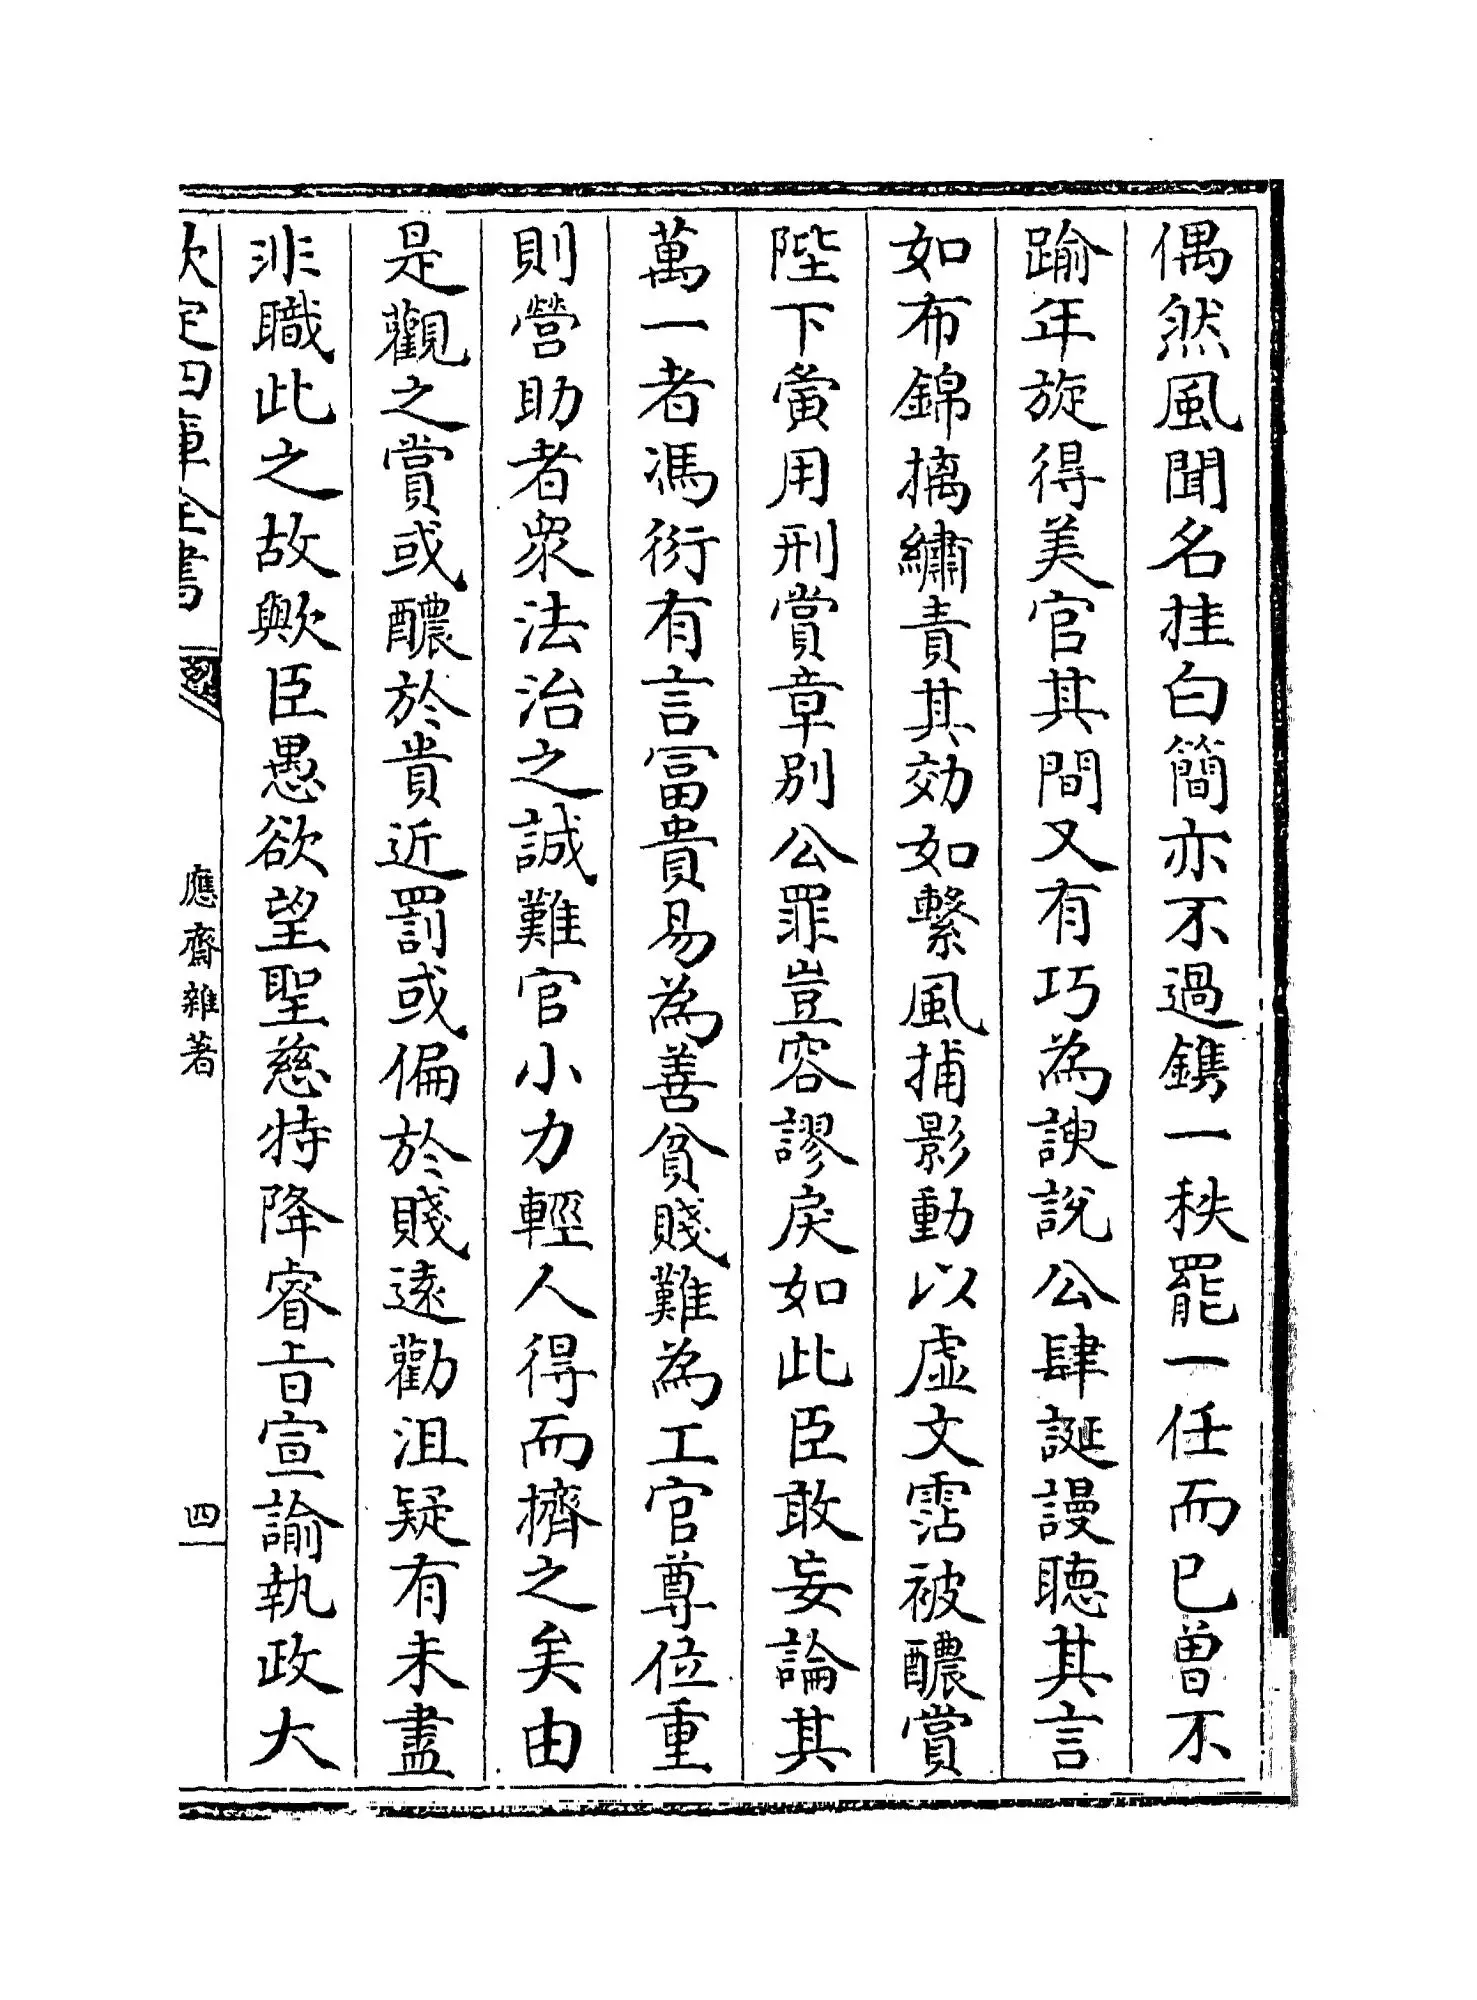 偶然風聞名挂白簡亦不過鐫一秩罷一任而已曾不
踰年旋得美官其間又有巧為諛說公肆誕謾聴其言
如布錦摛繡責其効如繫風捕影動以虛文霑被醲賞
陛下黌用刑賞章別公罪豈容謬戾如此臣敢妄論其
萬一者馮衍有言富貴易為善貧賤難為工官尊位重
則營助者衆法治之誠難官小力輕人得而擠之矣由
是觀之賞或醲於貴近罰或偏於賤遠勸沮疑有未盡
非職此之故歟臣愚欲望聖慈特降睿旨宣諭執政大
欽定四庫全書
應齋雜著
四